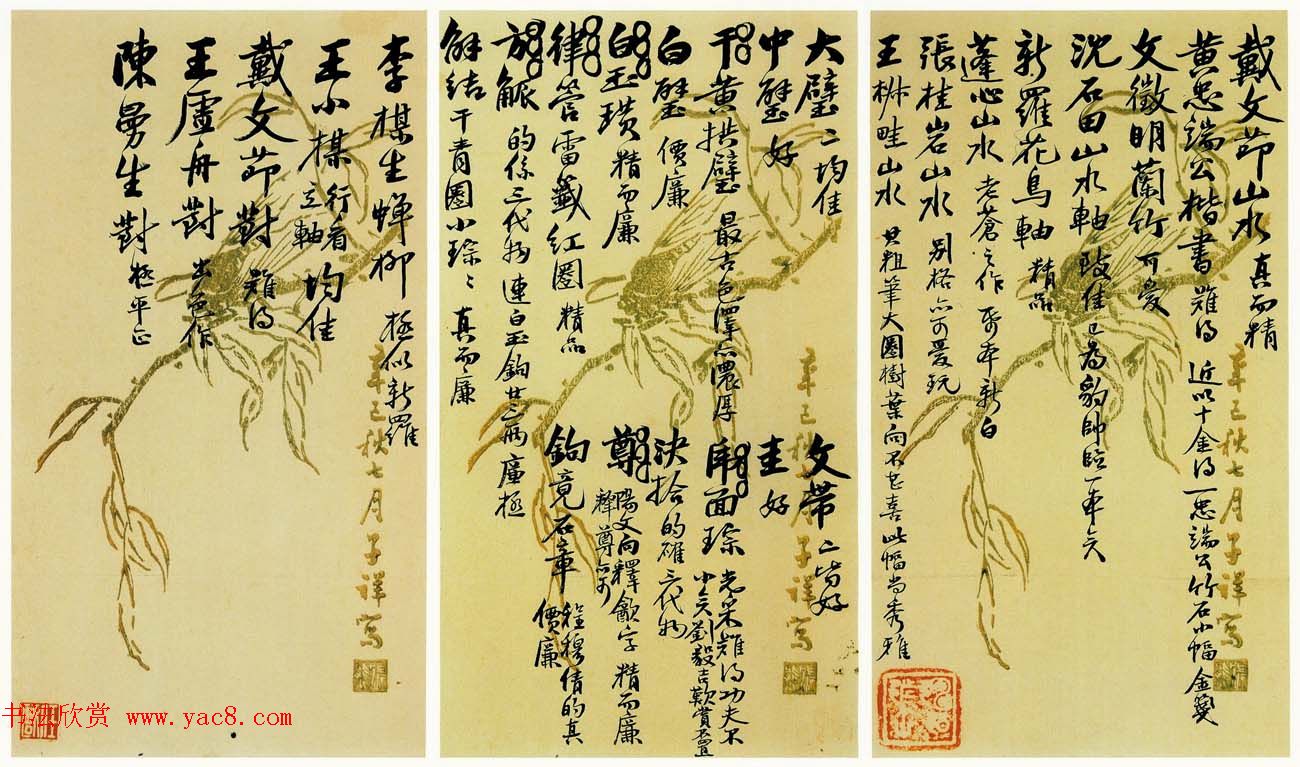 戴文節山水 真而精
黄忠端公楷書 難得 近以十金得一忠端公竹石小幅 金箋
文徵明蘭竹 可愛
沈石田山水軸 致佳 已為豹帥臨一本矣
新羅花鳥軸 精品
蓬心山水 老蒼之作 紙本新白
張桂岩山水 別格亦可愛玩
王椒畦山水 其粗筆大圈樹葉向不甚喜此幅尚秀雅
大璧 二均佳
中璧 好
黄拱璧 最古色澤亦濃厚
白璧 價廉
白玉璜 精而廉
律管雷籤紅圈 精品
觽 的係三代物 連白玉鉤廿三兩廉極
解結 干青圈小琮 真而廉
文帶 二皆好
圭 好
面琮 光采難得功夫不
少矣劉毅吉歎賞
決拾 的確三代物
尊 陽文向釋歙字 精而廉
釋尊亦可
鉤 竟石章 程穆倩的真
價廉
李楳生蟬柳 極似新羅
王小楳 行看 均佳
立軸
戴文節對 難得
王虛舟對 出色作
陳曼生對 極平正
辛巳秋七月子祥寫
辛巳秋七月子祥寫
辛巳秋七月子祥寫
书法欣赏 www.yac8.com